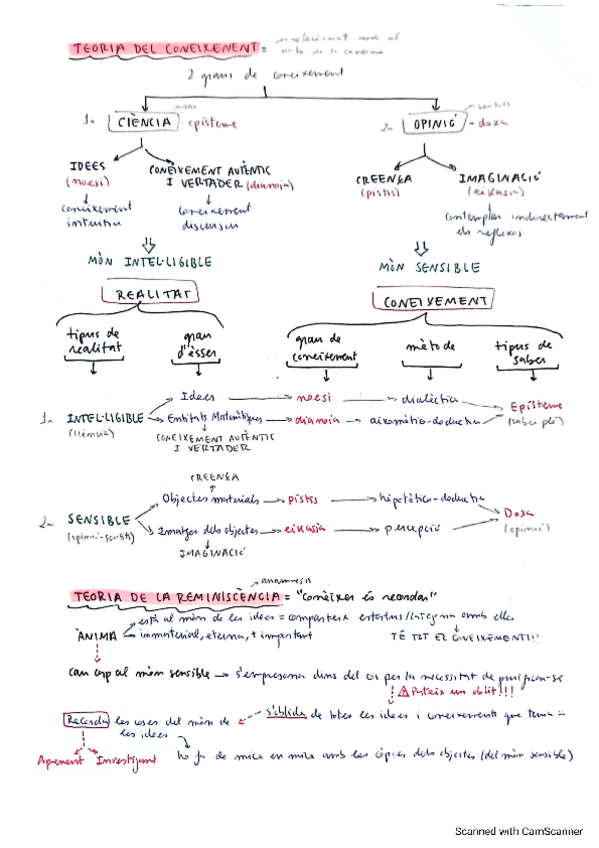 TEORIA DEL CONEIXEMENT = relacionat amb el
mite de la caverna
2 graus de coneixement
1- CIÈNCIA - episteme
2- OPINIÓ - doxa
sentits
IDEES
(noesi)
coneixement
intuitiu
CONEIXEMENT AUTÈNTIC
I VERTADER (dianoia)
coneixement
discursiu
CREENÇA
(pistis)
IMAGINACIÓ
(eikasia)
contemplar indirectament
els reflexos
MÓN INTEL·LIGIBLE
MÓN SENSIBLE
REALITAT
CONEIXEMENT
tipus de
realitat
grau
d'ésser
grau de
coneixement
mètode
tipus de
saber
1- INTEL·LIGIBLE
(ciència)
Idees noesi dialèctica
Entitats Matemàtiques dianoia axiomàtico-deductiu
CONEIXEMENT AUTÈNTIC
I VERTADER
Episteme
(saber ple)
CREENÇA
2- SENSIBLE
(opinió-sentits)
Objectes materials pistis hipotètico-deductiu
Imatges dels objectes eikasia percepció
IMAGINACIÓ
Doxa
(opinió)
anamnesis
TEORIA DE LA REMINISCÈNCIA = "Conèixer és recordar"
ÀNIMA
està al món de les idees = comparteix amb elles
immaterial, eterna, + important
TÉ TOT EL CONEIXEMENT!!!
cau cap al món sensible s'empresona dins del cos per la necessitat de purificar-se
Pateix un oblit!!!
Recorda les coses del món de
les idees
s'oblida de totes les idees i coneixements que tenia
Aprenent Investigant
ho fa de mica en mica amb les còpies dels objectes (del món sensible)
Scanned with CamScanner